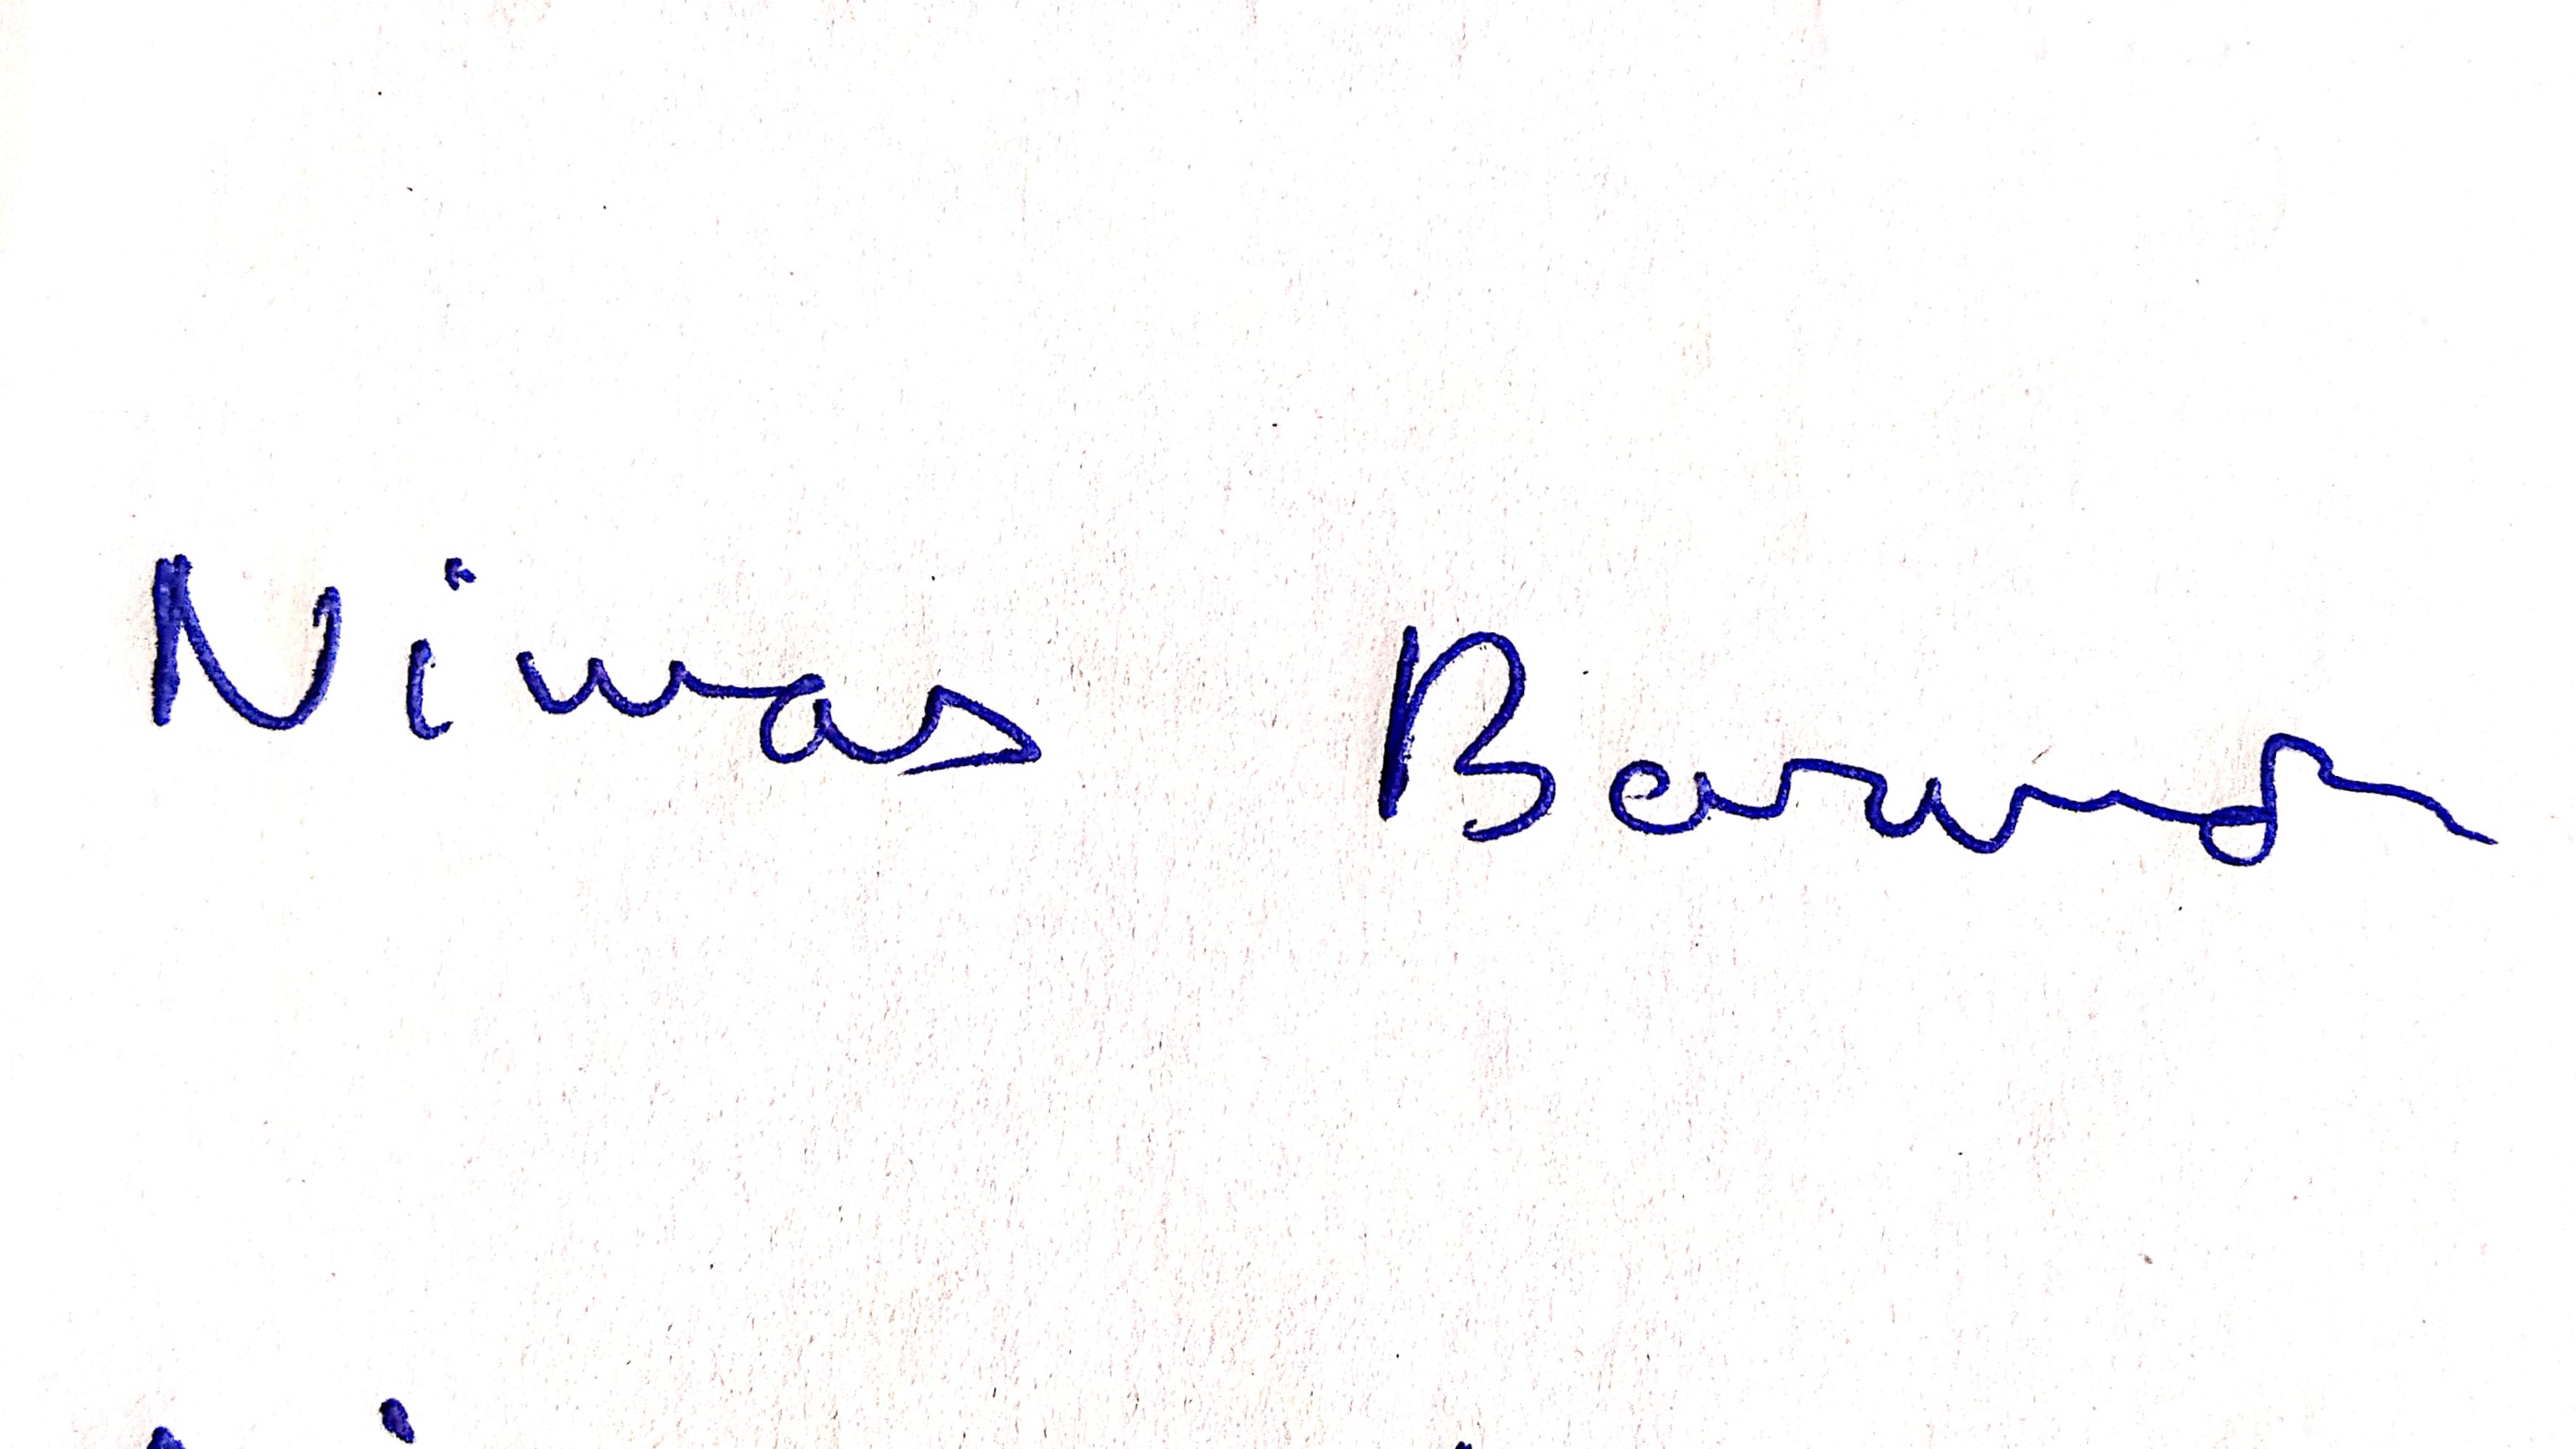 Niwas Barwa